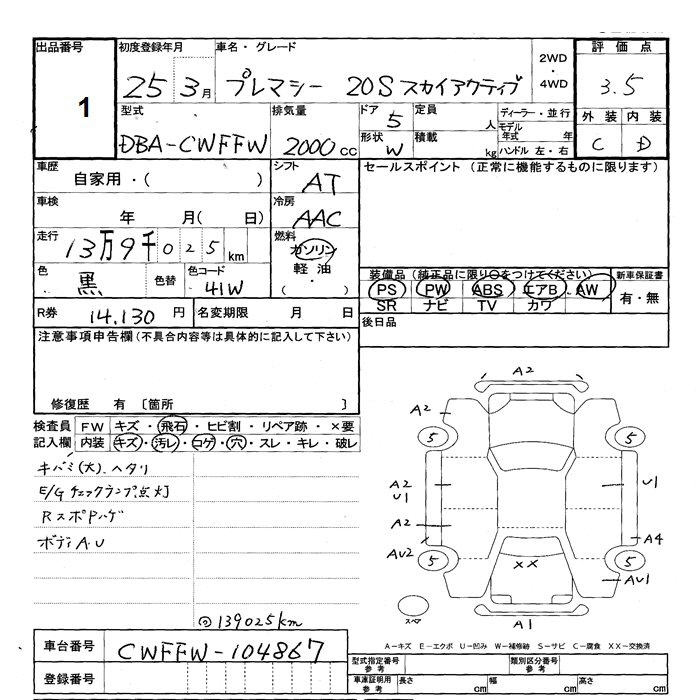 出品番号 初度登録年月 車名・グレード 2WD・4WD 評価点
1 25 3月 プレマシー 20S スカイアクティブ 3.5
型式 排気量 ドア 5 定員 人 ディーラー・並行 外装 内装
DBA-CWFFW 2000cc 形状 W 積載 kg モデル年式 年 ハンドル 左・右 C D
車歴 自家用・( ) シフト AT セールスポイント (正常に機能するものに限ります)
車検 年 月( 日) 冷房 AAC
走行 13万9千025km 燃料 ガソリン 軽油 ( ・ )
色 黒 色替 色コード 41W 装備品 (純正品に限り○をつけてください) 新車保証書
PS PW ABS エアB AW 有・無
SR ナビ TV カワ
R券 14,130円 名変期限 月 日 後日品
注意事項申告欄(不具合内容等は具体的に記入して下さい)
修復歴 有 [箇所 ]
検査員 FW キズ・飛石・ヒビ割・リペア跡・×要
記入欄 内装 キズ・汚レ・コゲ・穴・スレ・キレ・破レ
キバミ(大).ヘタリ
E/Gチェックランプ点灯
RスポPハゲ
ボディA.U
◎139025km
A2
A2
5 5
A2
U1 U1
A2 A4
AU2 5 5
×× AU1
スペア A1
A-キズ E-エクボ U-凹み W-補修跡 S-サビ C-腐食 XX-交換済
車台番号 CWFFW-104867
登録番号
型式指定番号 参考 類別区分番号 参考
車庫証明用 参考 長さ cm 幅 cm 高さ cm